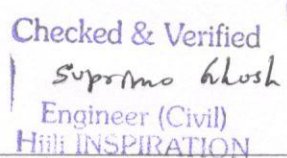 Checked & Verified
Supromo Ghosh
Engineer (Civil)
Hiili INSPIRATION